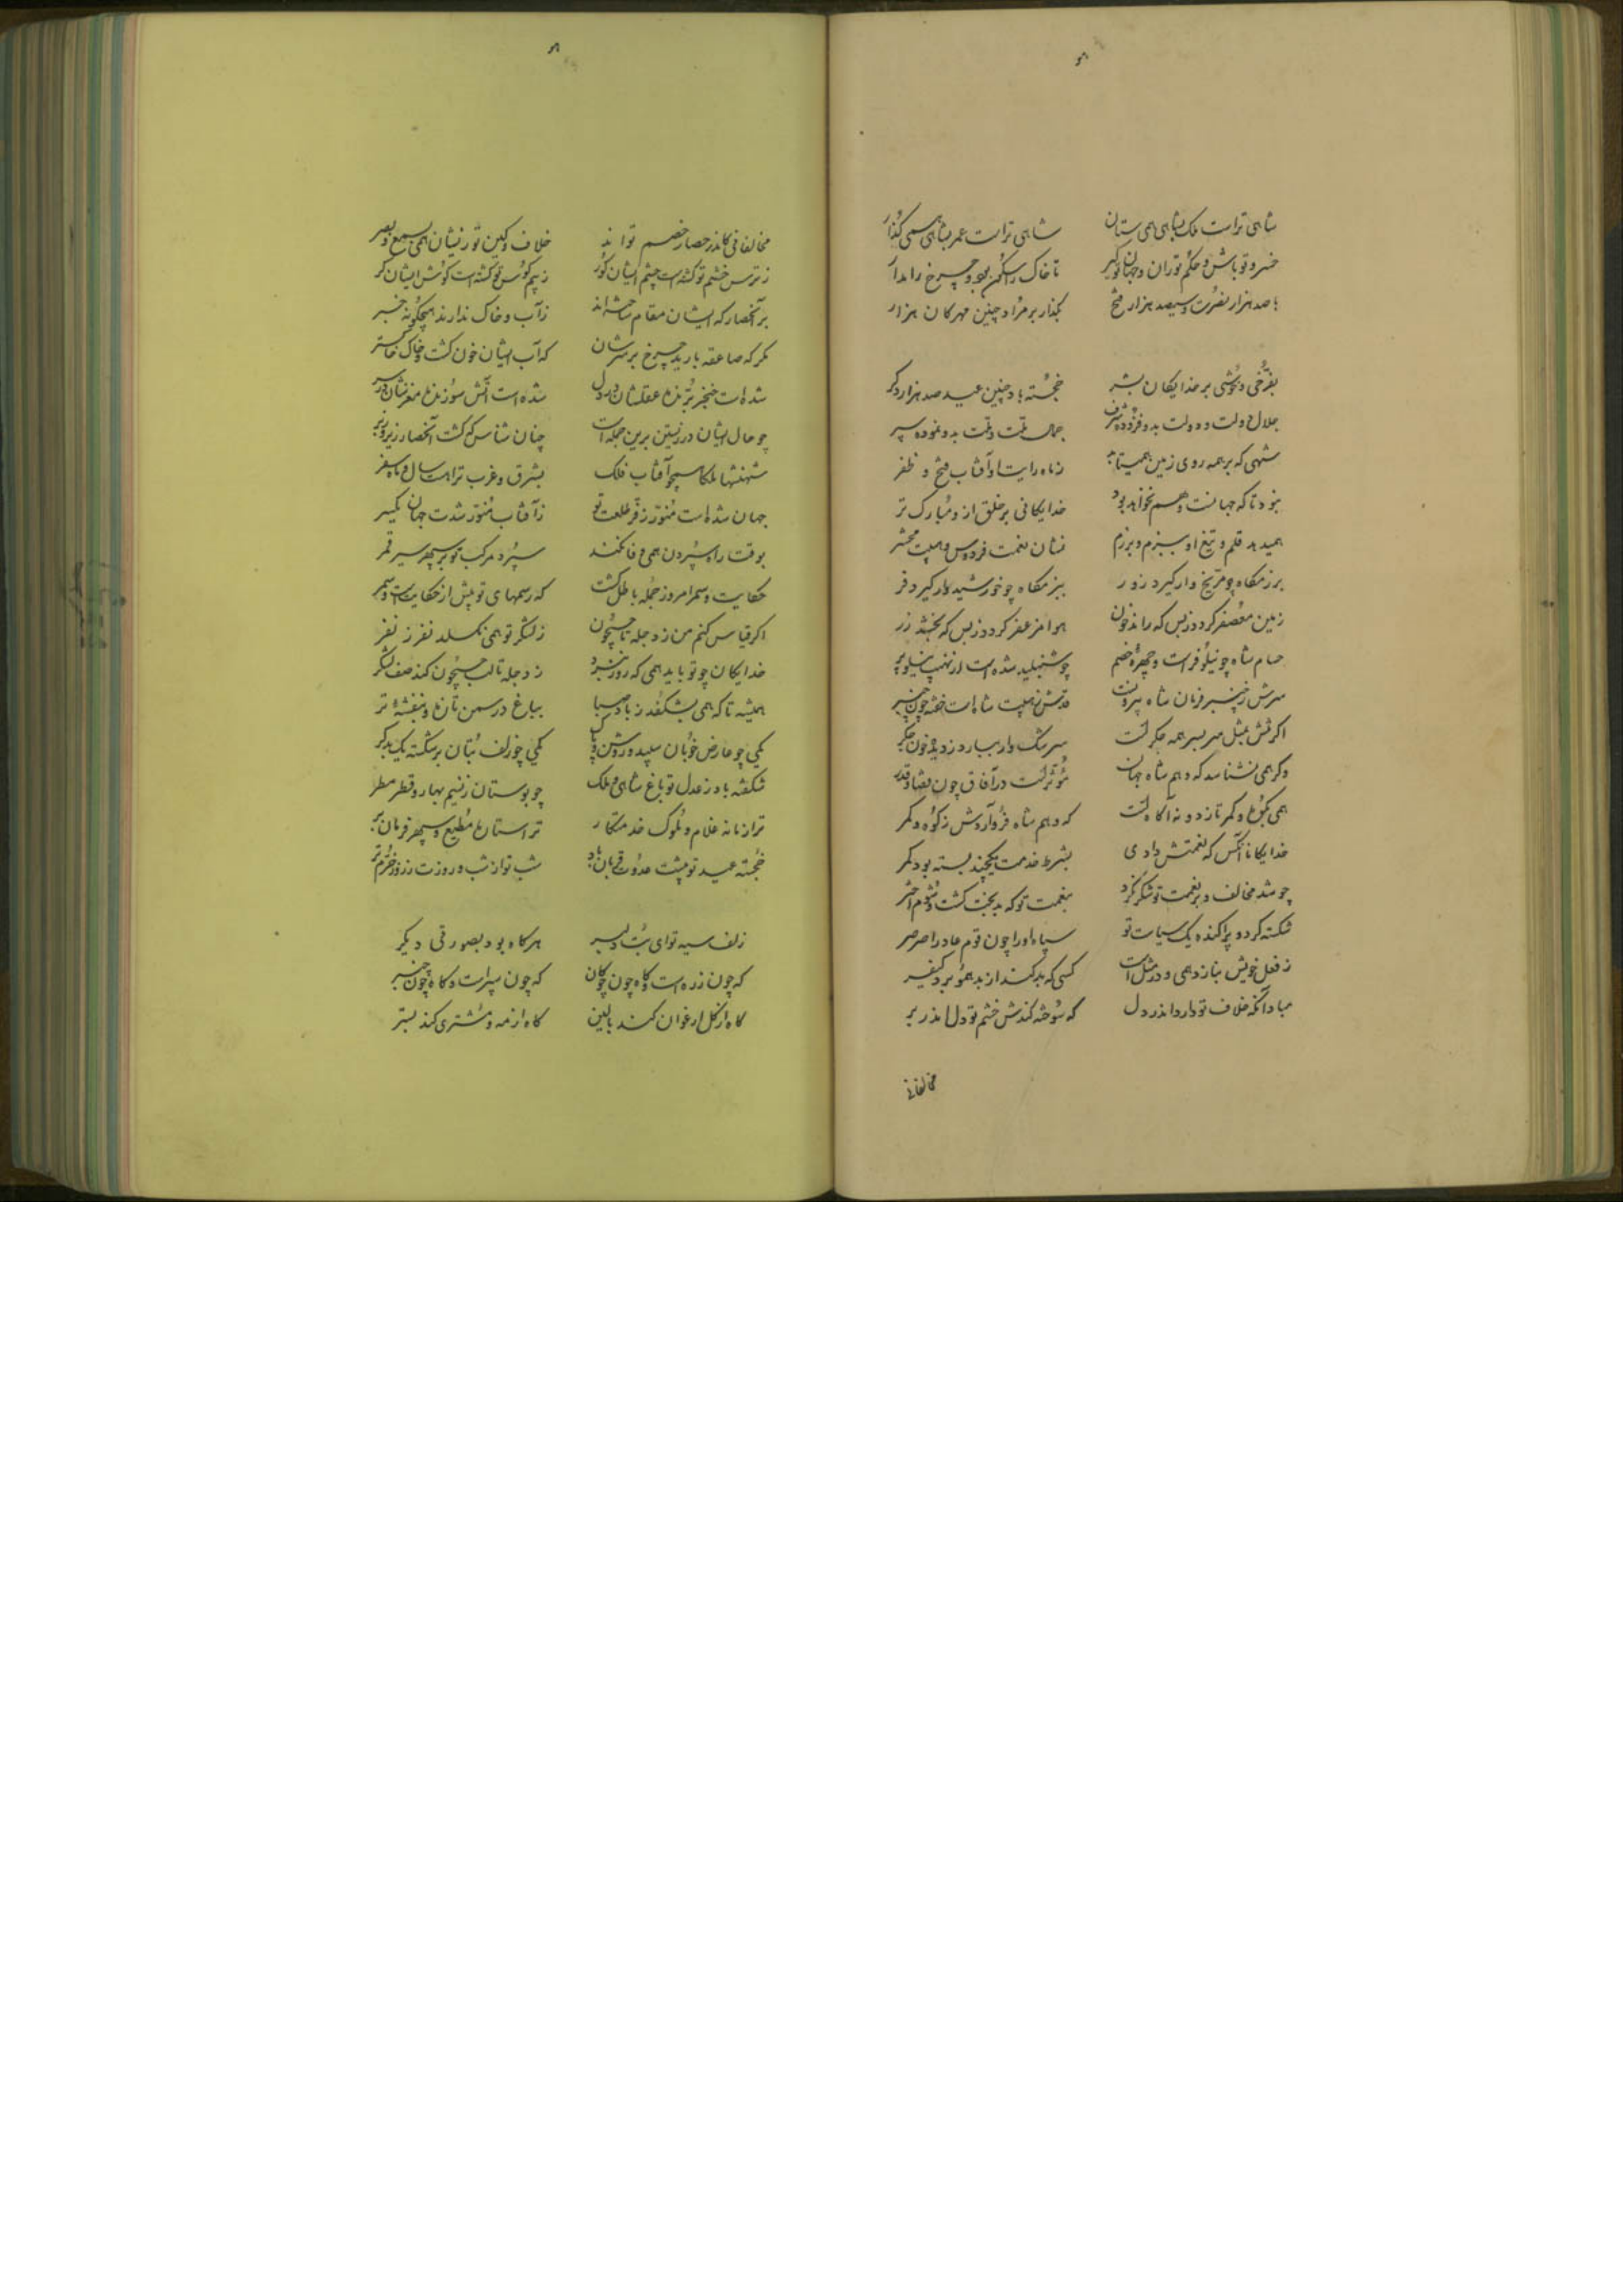 شاهی تراست ملک بشاهی همی ستان شاهی تراست عمر بشاهی همی گذار
خسرو تو باش و حکم تو ران و جهان تو گیر تا خاک را سکون بود و چرخ را مدار
با صد هزار نصرت و سیصد هزار فتح بگذار بر مراد چنین مهرکان هزار
بفرخی و خوشی بر خدایکان بشر خجسته باد چنین عید صد هزار دکر
جلال دولت و دولت بدو فزوده شرف جمال ملت و ملت بدو نموده سیر
شهی که بر همه روی زمین همیتابد ز ماه رایت او آفتاب فتح و ظفر
نبود تا که جهانست و هم نخواهد بود خدایکانی بر خلق ازو مبارک تر
همیدهد قلم و تیغ او ببزم و برزم نشان نعمت فردوس و هیبت محشر
برزمکاه چو مریخ وار کیرد زور ببزمکاه چو خورشید وار کیرد فر
زمین معصفر کردد ز بس که راند خون هوا مزعفر کردد ز بس که بخشد زر
حسام شاه چو نیلوفر است و چهره خصم چو شنبلید شده است از نهیب نیلوفر
سرش ز چنبر فرمان شاه بیرونست قدش ز هیبت شاه است خفته چون چنبر
اکر تنش بمثل سر بسر همه جکر است سرشک وار ببارد ز دیده خون جکر
وکر همی نشناسد که وهم شاه جهان مؤثر است در آفاق چون قضا و قدر
همی بکوه و کمر تازد و نه آکاه است که وهم شاه فرو آردش ز کوه و کمر
خدایکانا آنکس که نعمتش دادی بشرط خدمت یکچند بسته بود کمر
چو شد مخالف و بر نعمت تو شکر نکرد بنعمت تو که بدبخت کشت و شوم اختر
شکسته کرد و پراکنده یک سیاست تو سپاه او را چون قوم عاد را صرصر
ز فعل خویش بنازد همی و در مثل است کسی که بد کند از بد همو برد کیفر
مباد آنکه خلاف تو دارد اندر دل که سوخته کندش خشم تو دل اندر بر
مخالفانی
مخالفانی کاندر حصار خصم تو اند خلاف و کین تو زیشان همی سمع و بصر
ز ترس خشم تو کشته است چشم ایشان کور ز بیم کوس تو کشته است کوش ایشان کر
بر آنحصار که ایشان مقام ساخته اند ز آب و خاک ندارند هیچکونه خبر
مکر که صاعقه بارید چرخ بر سرشان که آب ایشان خون کشت و خاک خاکستر
شده است خنجر برنده عقلشان در دل شده است آتش سوزنده مغزشان در سر
چو حال ایشان در زیستن برین جمله است چنان شناس که کشت آنحصار زیر و زبر
شهنشها ملکا همچو آفتاب فلک بشرق و غرب تراهست سال و ماه سفر
جهان شده است منور ز فر طلعت تو ز آفتاب منور شدت جهان یکسر
بوقت راه سپردن همی وفا نکند سپرد مرکب تو بر سپهر سیر قمر
حکایت و سمر امروز جمله باطل کشت که رسمهای تو بیش از حکایتست و سمر
اکر قیاس کنم من ز دجله تا جیحون ز لشکر تو همی نکسلد نفر ز نفر
خدایکان چو تو باید همی که روز نبرد ز دجله تا لب جیحون کند صف لشکر
همیشه تا که همی بشکفد ز باد صبا بباغ در سمن تازه و بنفشه تر
یکی چو عارض خوبان سپید و روشن و پاک یکی چو زلف بتان بر شکسته یک بدکر
شکفته باد ز عدل تو باغ شاهی و ملک چو بوستان ز نسیم بهار و قطر مطر
ترا زمانه غلام و ملوک خدمتکار ترا ستاره مطیع و سپهر فرمان بر
خجسته عید تو و پیشت عدوت قربان باد شب تو از شب و روزت ز روز خرم تر
زلف سیه تو ای بت دلبر هر کاه بود بصورتی دیکر
که چون زره است و کاه چون چوکان که چون سپر است و کاه چون چنبر
کاه از کل ارغوان کند بالین کاه از مه و مشتری کند بستر